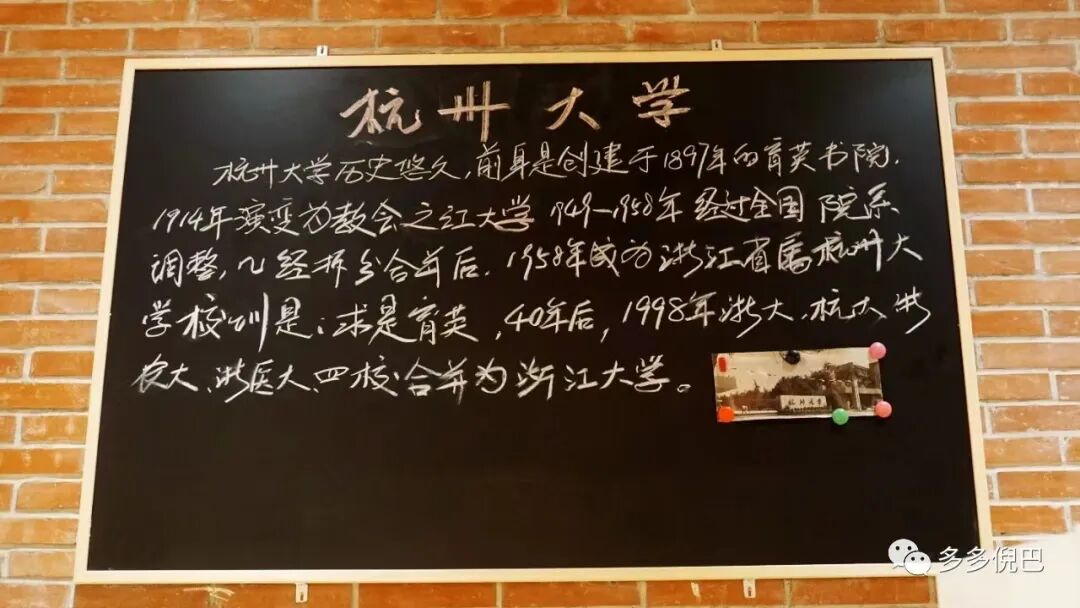 杭州大学
杭州大学历史悠久,前身是创建于1897年的育英书院.
1914年演变为教会之江大学 1949—1958年经过全国院系
调整,几经拆分合并后.1958年成为浙江省属杭州大
学校训是:求是育英,40年后,1998年浙大.杭大.浙
农大、浙医大、四校合并为浙江大学。
杭州大学
多多倪巴